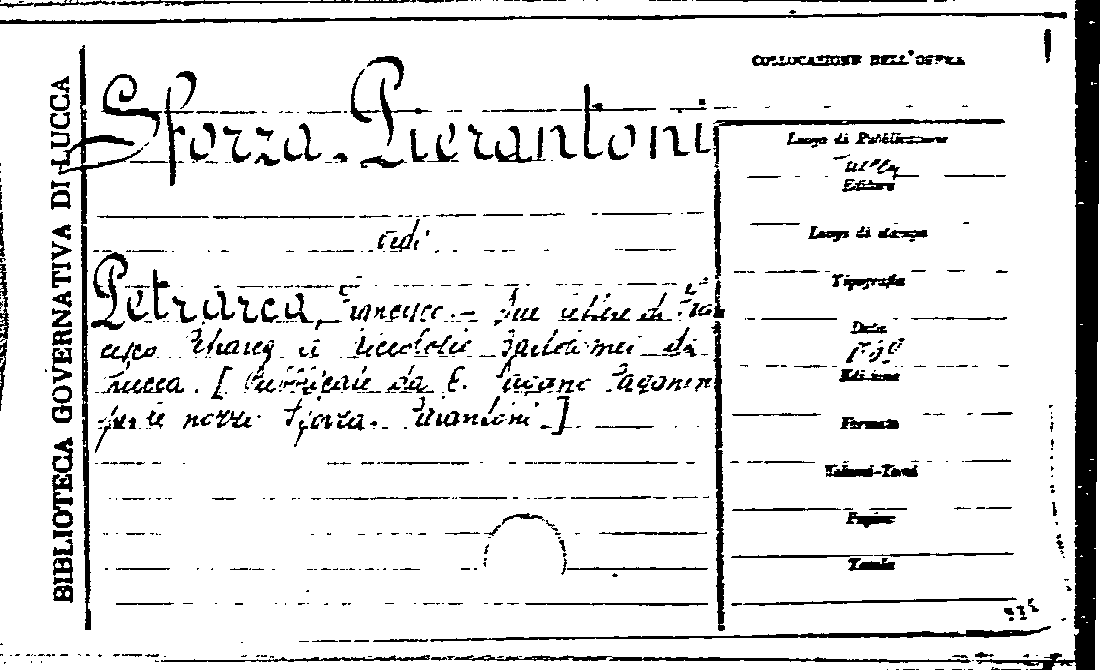 BIBLIOTECA GOVERNATIVA DI LUCCA
COLLOCAZIONE DELL'OPERA
Sforza-Pierantoni
vedi
Petrarca, Francesco - Due lettere di Fran
cesco a Niccolosio Bartolomei di
Lucca. [Pubblicate da E. Paganini
per le nozze Sforza-Pierantoni]
Luogo di Pubblicazione
Lucca
Editore
Luogo di stampa
Tipografia
Data
Edizione
Formato
Volumi-Tomi
Pagine
Tavole